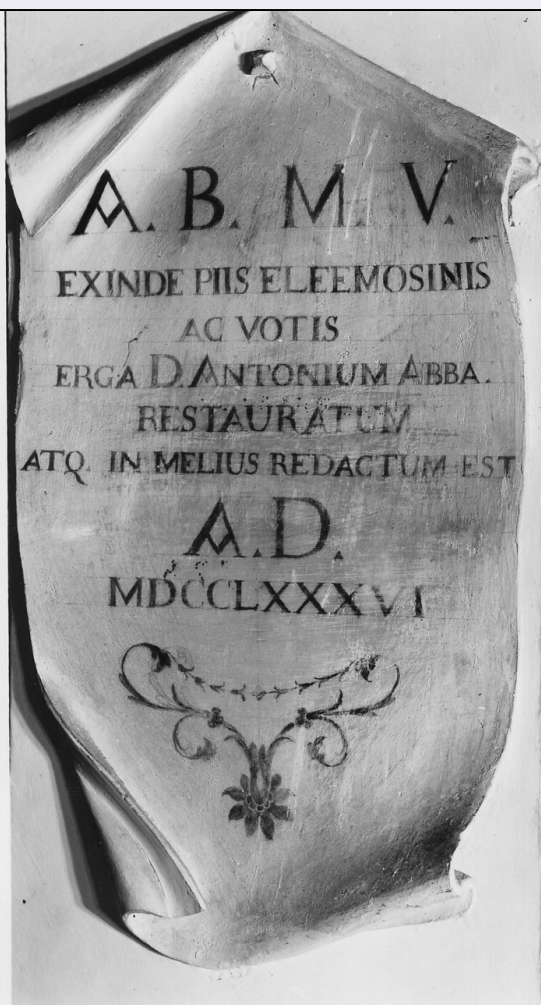 A. B. M. V.
EXINDE PIIS ELEEMOSINIS
AC VOTIS
ERGA D. ANTONIUM ABBA.
RESTAURATUM
ATQ. IN MELIUS REDACTUM EST
A.D.
MDCCLXXXVI